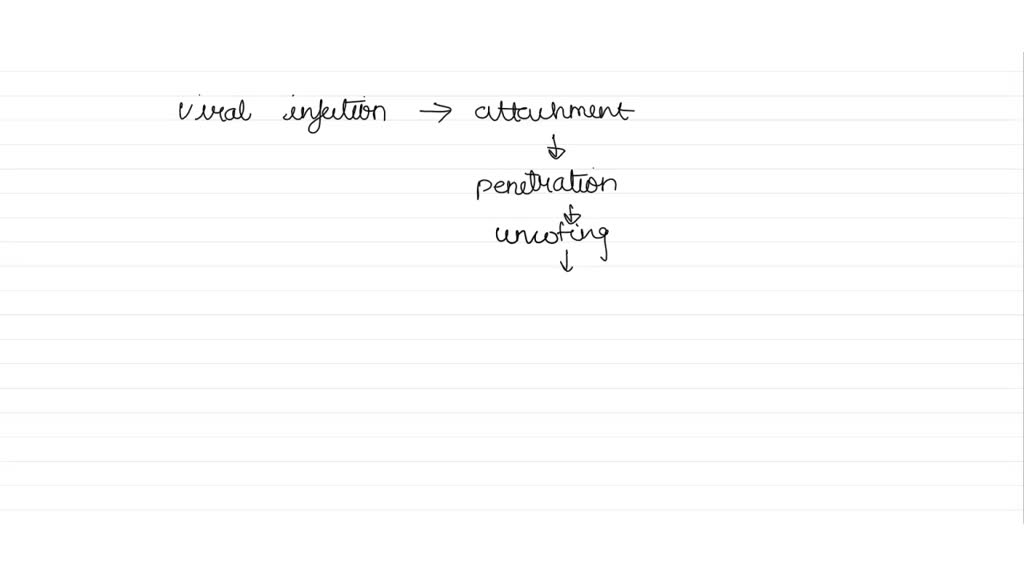 viral infection → attachment
↓
penetration
↓
uncoting
↓